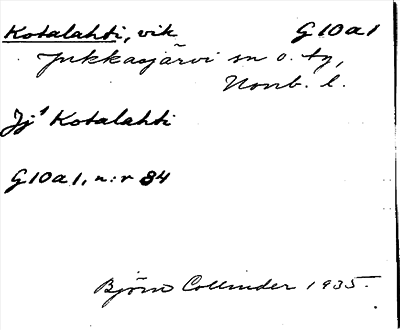 Kotalahti, vik G10a1
Jukkasjärvi sn o. tg,
Norrb. l.
Jj¹ Kotalahti
G10a1, n:r 84
Björn Collinder 1935.